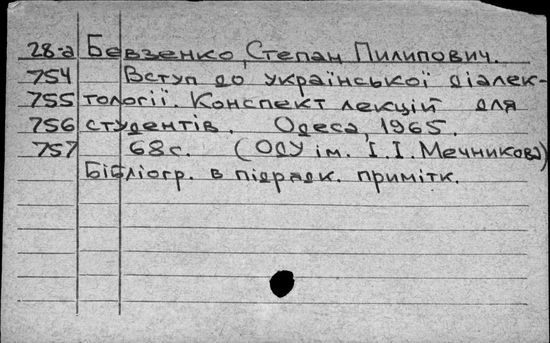 28-а Бевзенко, Степан Пилипович.
754 Вступ до української діалек-
755 тології. Конспект лекцій для
756 студентів. Одеса, 1965.
757 68с. (ОДУ ім. І.І.Мечникова)
Бібліогр. в підрядк. примітк.